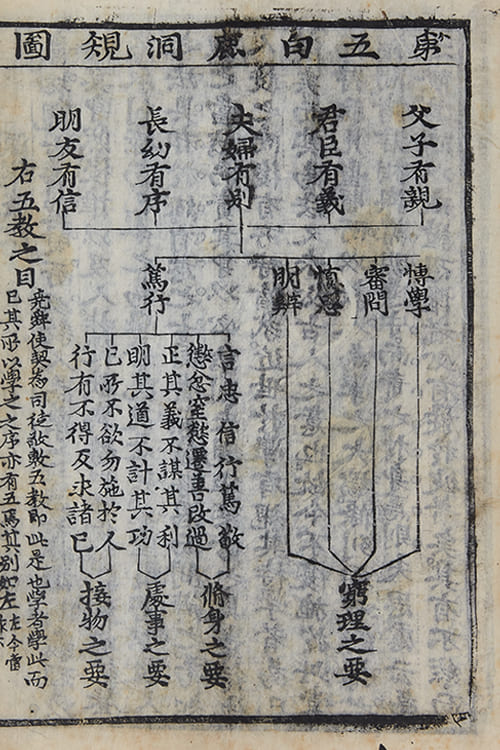 第五白鹿洞規圖
父子有親
君臣有義
夫婦有別
長幼有序
朋友有信
博學
審問
愼思
明辨
篤行
言忠信行篤敬
懲忿窒慾遷善改過
正其義不謀其利
明其道不計其功
己所不欲勿施於人
行有不得反求諸己
窮理之要
修身之要
處事之要
接物之要
右五教之目
堯舜使契為司徒敬敷五教即此是也學者學此而
已其所以學之之序亦有五焉其別如左 左今當